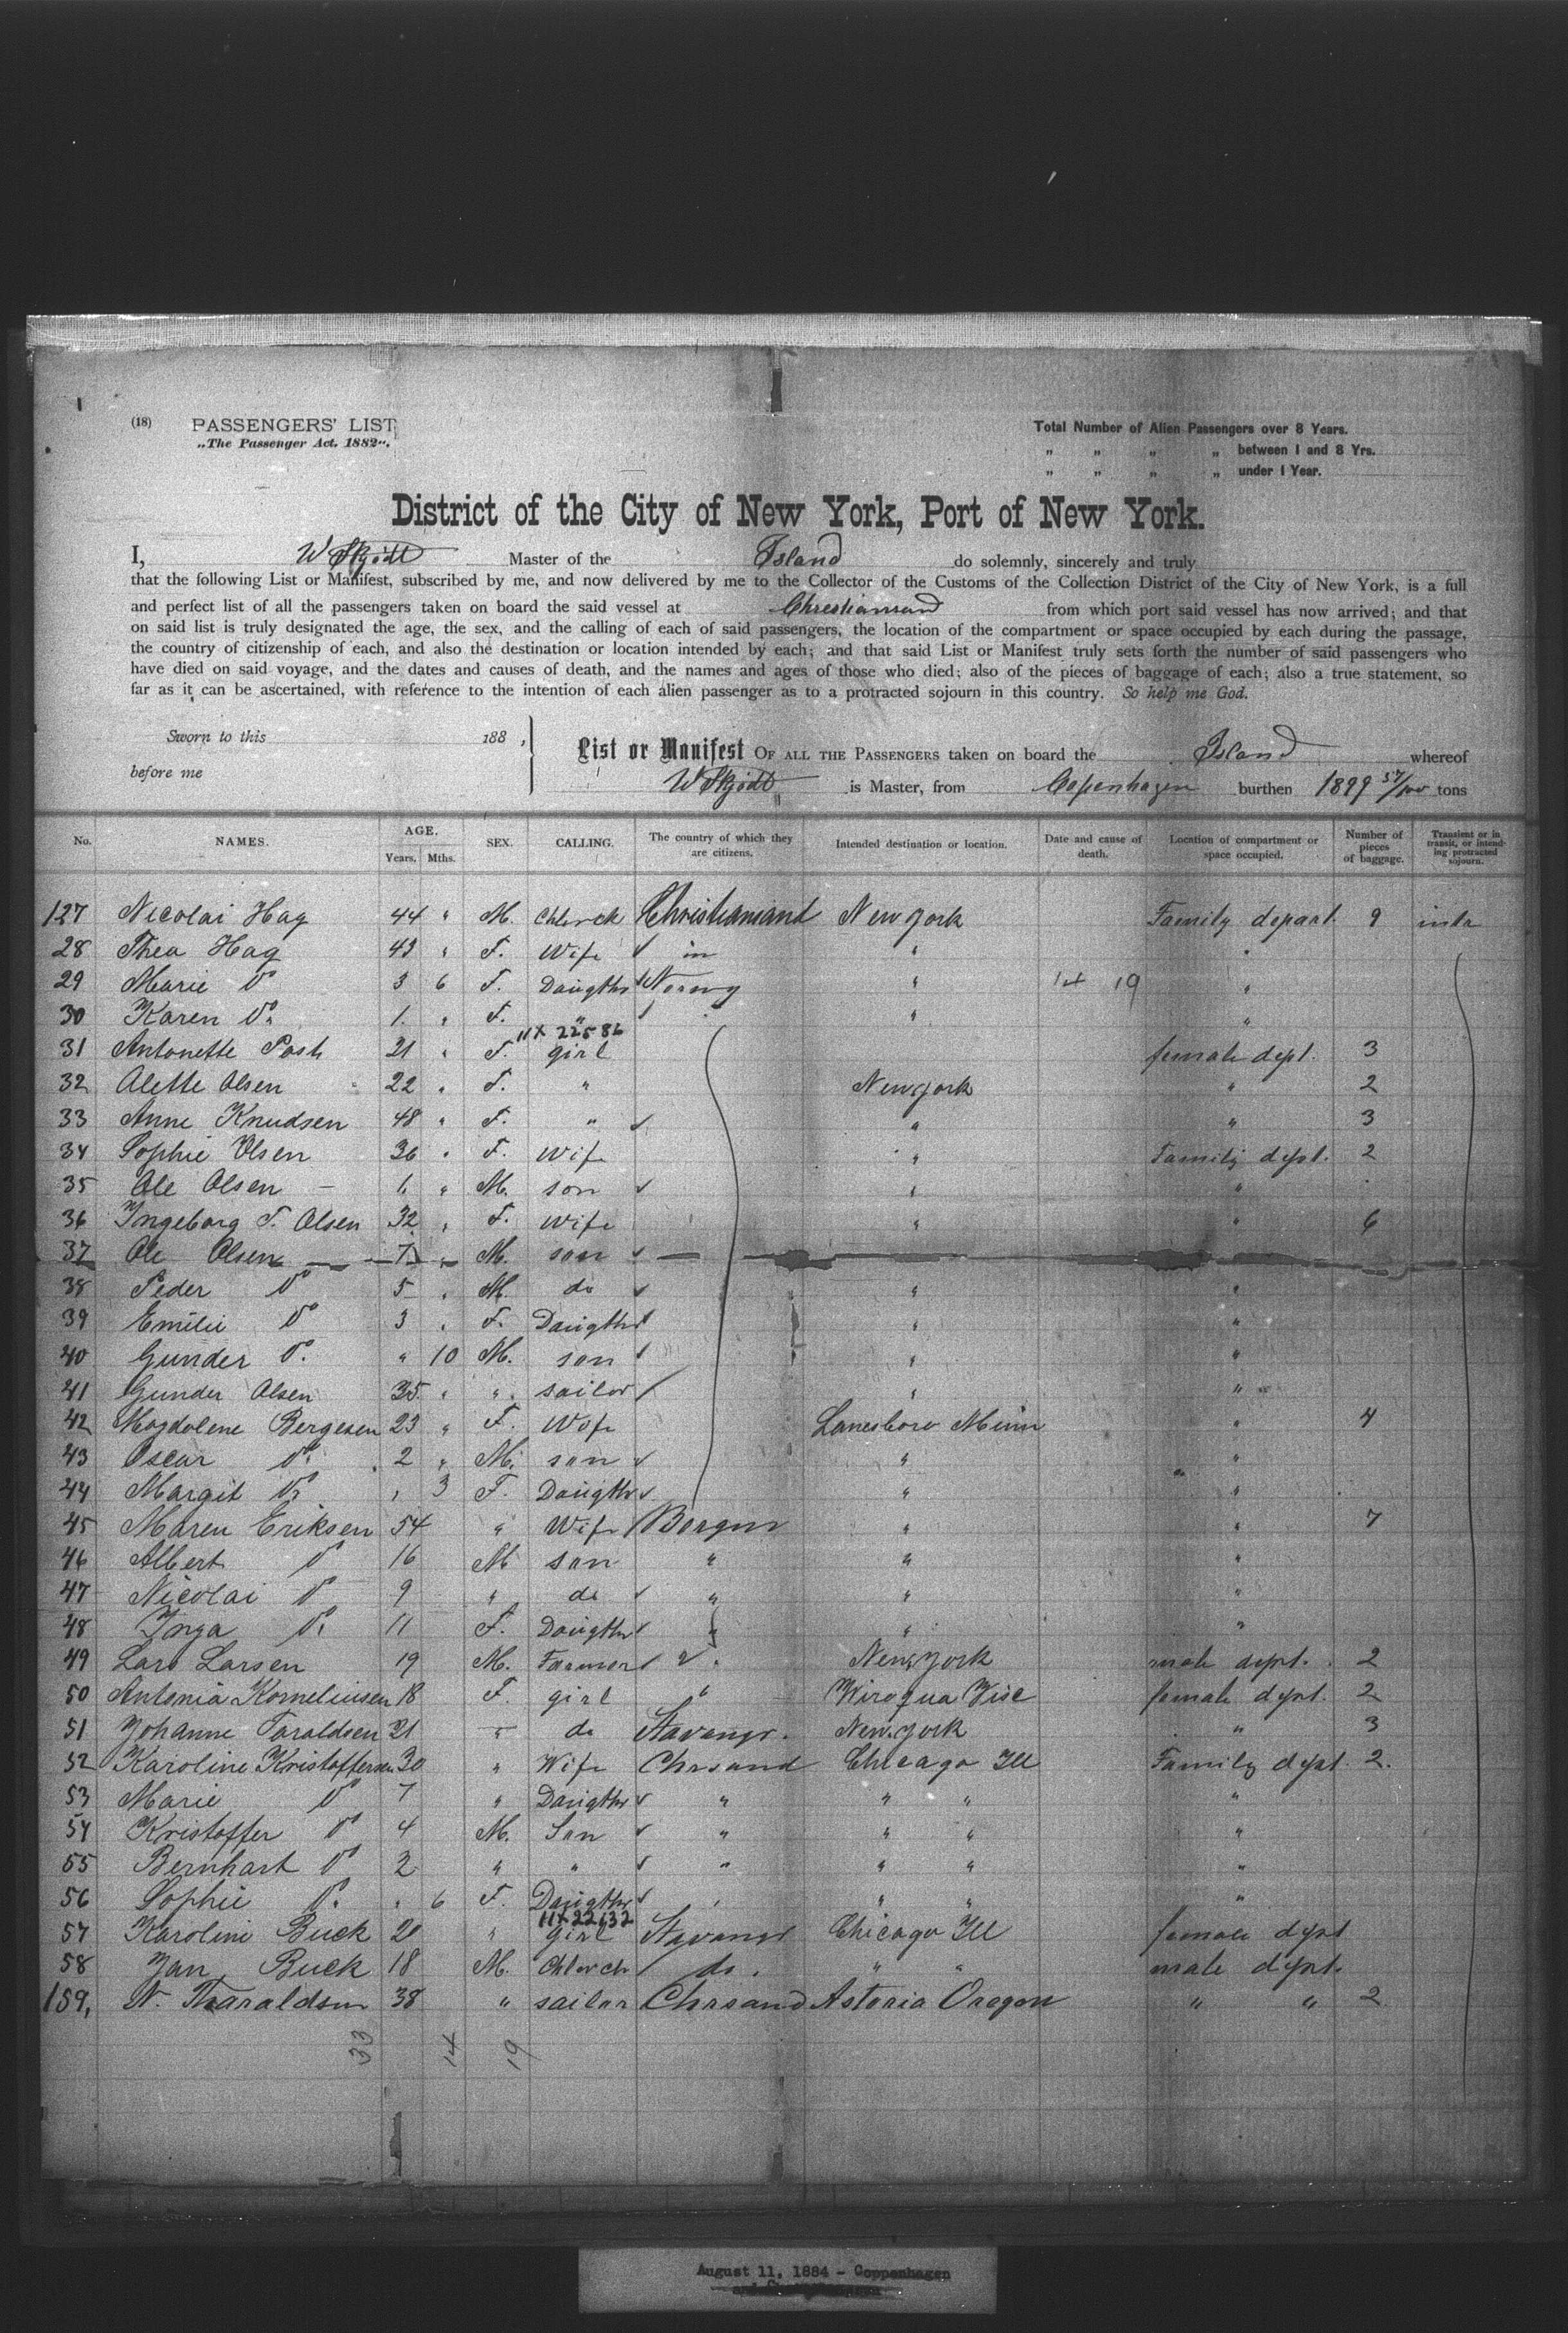 (18) PASSENGERS' LIST
„The Passenger Act. 1882".
Total Number of Alien Passengers over 8 Years.
„ „ „ „ between 1 and 8 Yrs.
„ „ „ „ under 1 Year.
District of the City of New York, Port of New York.
I, W Skjödt Master of the Island do solemnly, sincerely and truly
that the following List or Manifest, subscribed by me, and now delivered by me to the Collector of the Customs of the Collection District of the City of New York, is a full
and perfect list of all the passengers taken on board the said vessel at Christiansand from which port said vessel has now arrived; and that
on said list is truly designated the age, the sex, and the calling of each of said passengers, the location of the compartment or space occupied by each during the passage,
the country of citizenship of each, and also the destination or location intended by each; and that said List or Manifest truly sets forth the number of said passengers who
have died on said voyage, and the dates and causes of death, and the names and ages of those who died; also of the pieces of baggage of each; also a true statement, so
far as it can be ascertained, with reference to the intention of each alien passenger as to a protracted sojourn in this country. So help me God.
Sworn to this 188 ,
before me
List or Manifest OF ALL THE PASSENGERS taken on board the Island whereof
W Skjödt is Master, from Copenhagen burthen 1899 57/100 tons
No. NAMES. AGE. Years. Mths. SEX. CALLING. The country of which they are citizens. Intended destination or location. Date and cause of death. Location of compartment or space occupied. Number of pieces of baggage. Transient or in transit, or intending protracted sojourn.
127 Nicolai Hag 44 " M. Chlerck Christiansand New york Family depart. 9
28 Thea Hag 43 " F. Wife in " "
29 Marie Do 3 6 F. Daugthr Norwy " 14 19 "
30 Karen Do. 1. " F. " " "
11 X 22586
31 Antonette Post 21 " F. girl female dept. 3
32 Alette Olsen 22 " F. " New york " 2
33 Anne Knudsen 48 " F. " " " 3
34 Sophie Olsen 36 " F. Wife " Family dept. 2
35 Ole Olsen – 1. " M. son " "
36 Ingeborg T. Olsen 32 " F. Wife " " 6
37 Ole Olsen 7 " M. son
38 Peder Do 5 " M. do " "
39 Emilie Do 3 " F. Daugthr " "
40 Gunder Do. " 10 M. son " "
41 Gunder Olsen 35 " " sailor " "
42 Magdolene Bergesen 23 " F. Wife Lanesboro Minn " 4
43 Oscar Do. 2 " M. son " "
44 Margit Do. " 3 F. Daugthr " "
45 Maren Eriksen 54 " Wife Bergen " " 7
46 Albert Do 16 M son " " "
47 Nicolai Do 9 " do " " "
48 Inga Do. 11 F. Daugthr " " "
49 Lars Larsen 19 M. Farmer New york male dept. 2
50 Antonia Korneliusen 18 F. girl " Wiroqua Wisc female dept. 2
51 Johanne Taraldsen 21 " do Stavangr. New york " 3
52 Karoline Kristoffersen 30 " Wife Chrsand Chicago Ill Family dept. 2.
53 Marie Do 7 " Daugthr " " " "
54 Kristoffer Do 4 M. Son " " " "
55 Bernhart Do 2 " " " " " "
56 Sophie Do. " 6 F. Daugthr " " " "
11X22132
57 Karoline Buck 20 " girl Stavangr Chicago Ill female dept
58 Jan Buck 18 M. Chlerch do. " " male dept.
159, N. Tharaldsen 38 " sailor Chrsand Astoria Oregon " " 2
33 14 19
August 11, 1884 - Coppenhagen